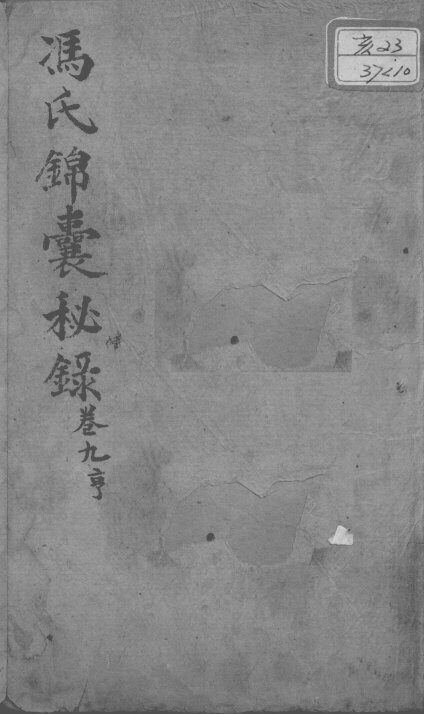 馮氏錦囊秘錄
卷九亨
亥23
37210